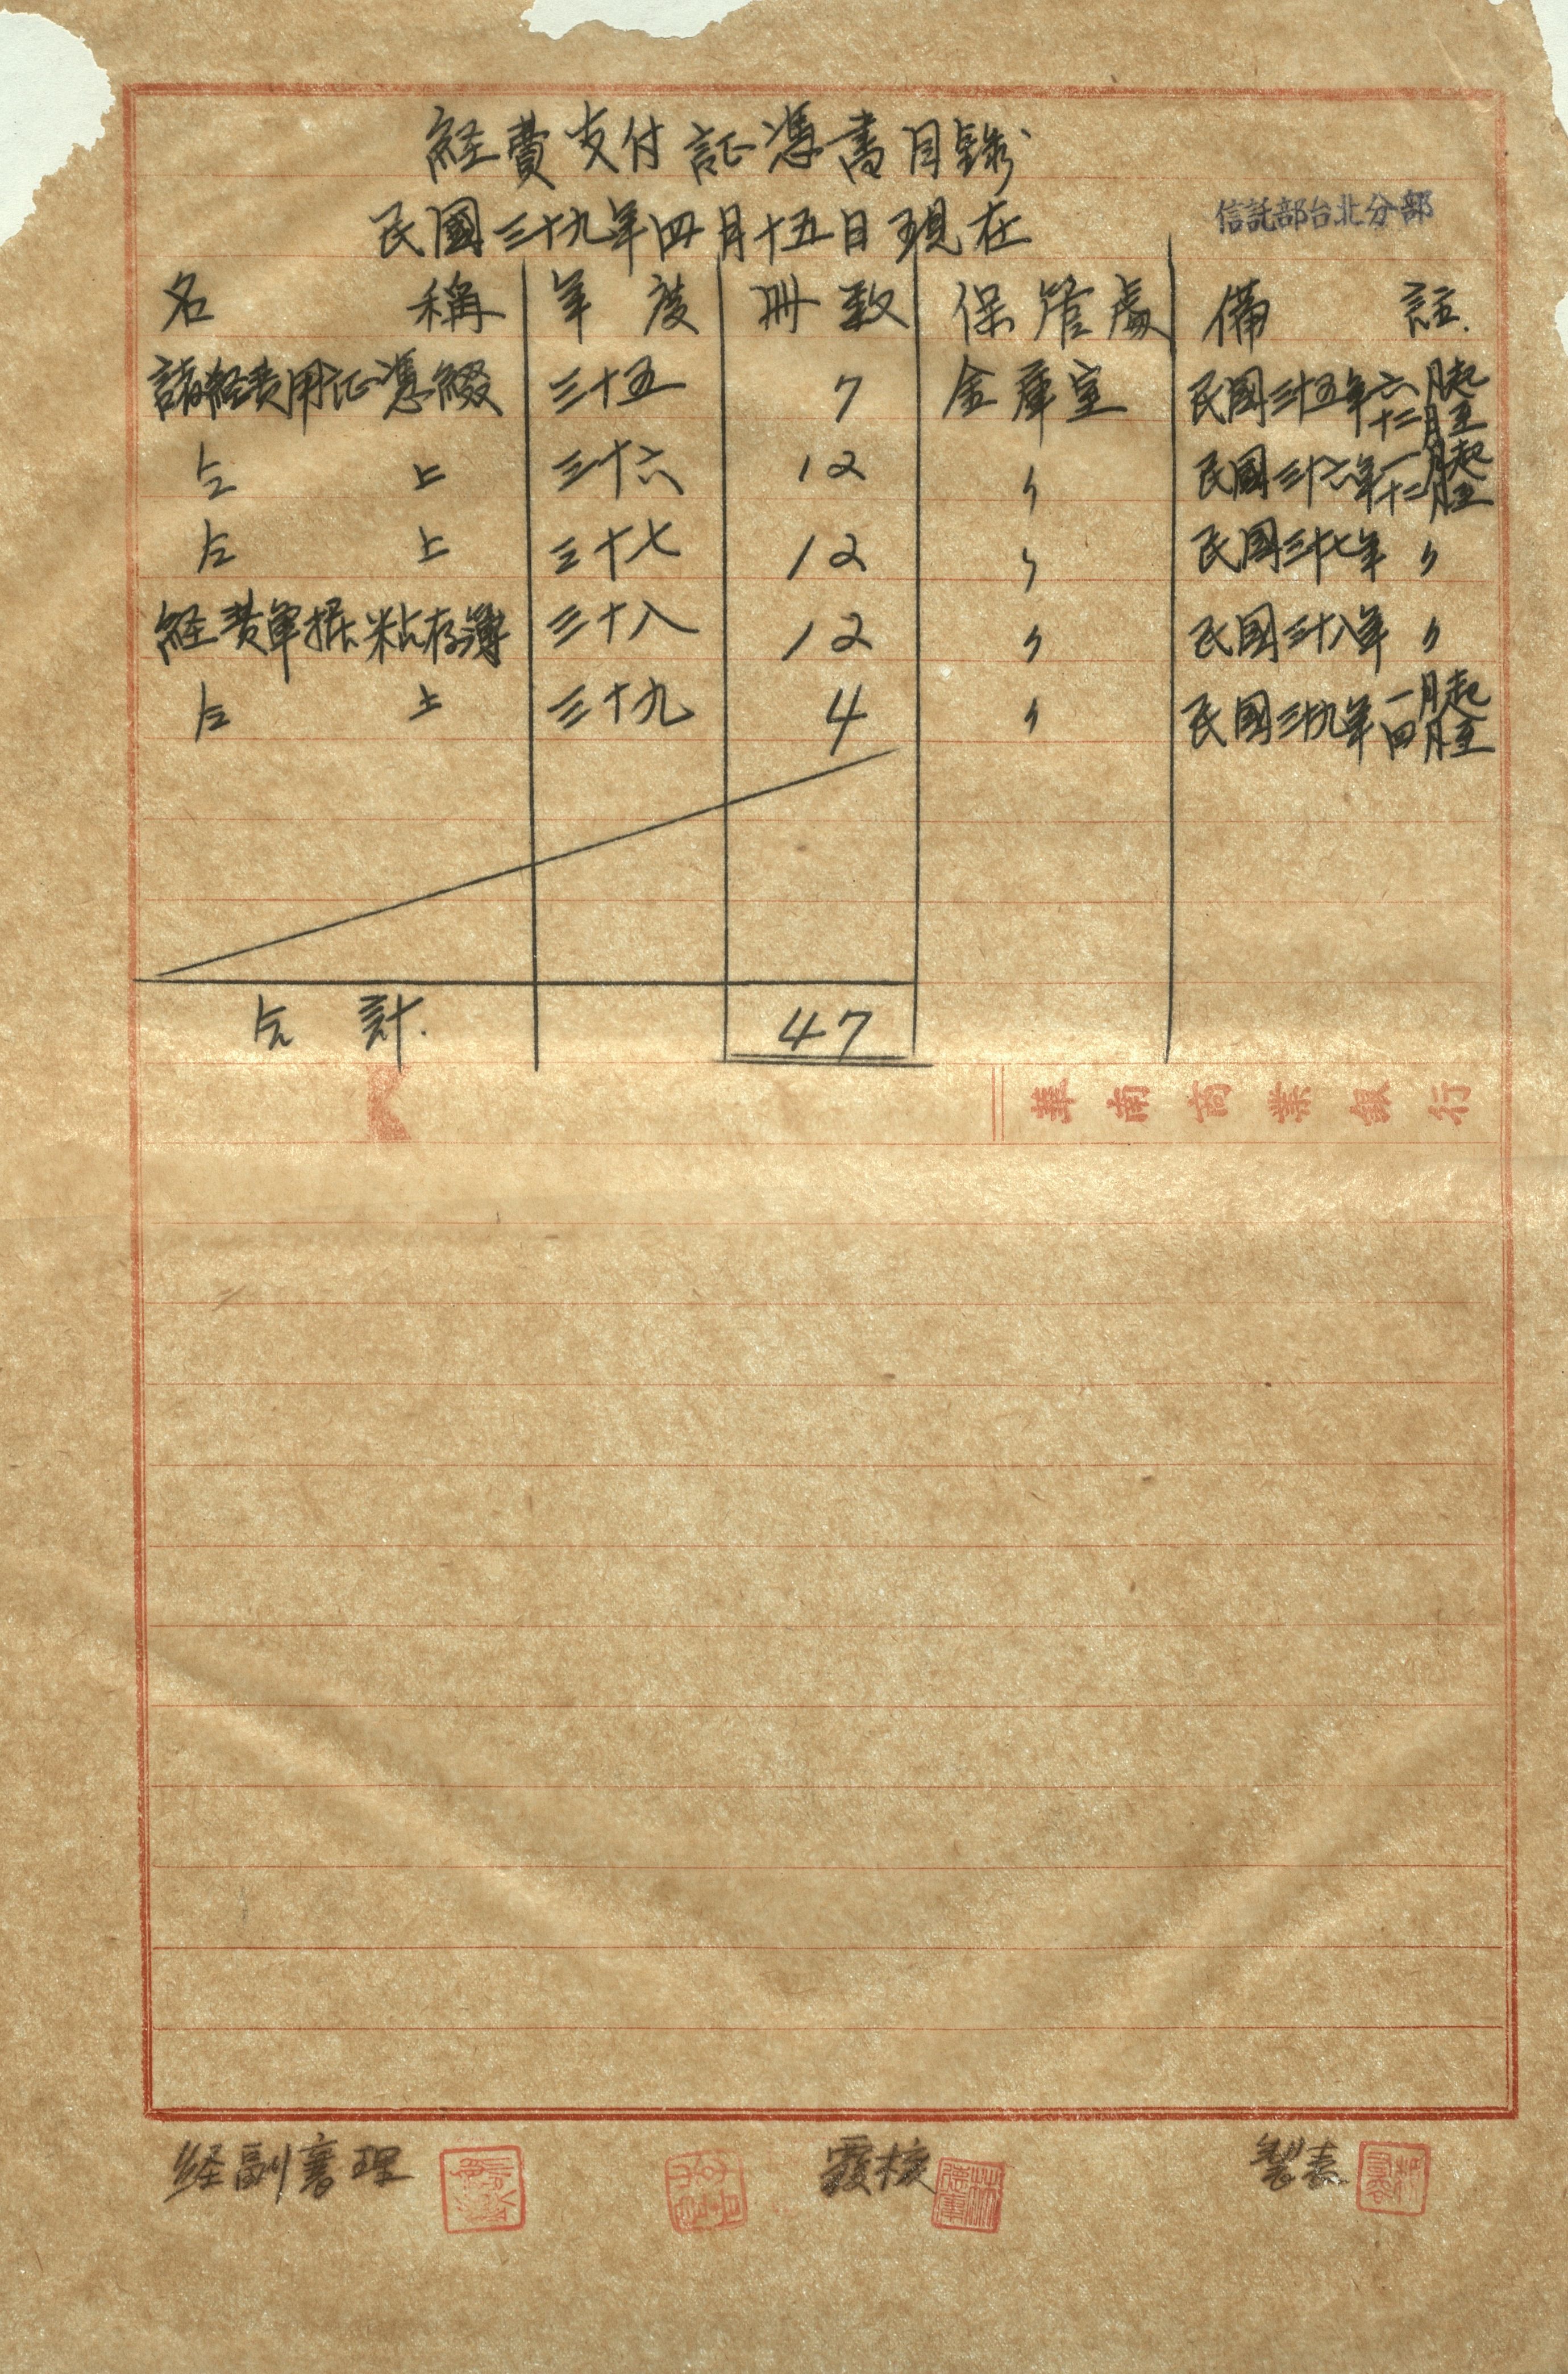 経費支付証憑書目錄
民國三十九年四月十五日現在
信託部台北分部
名稱 年度 冊数 保管處 備註.
諸経費用証憑綴 三十五 7 金庫室 民國三十五年六月起十二月至
仝上 三十六 12 〃 民國三十六年一月起十二月至
仝上 三十七 12 〃 民國三十七年 〃
経费單据粘存簿 三十八 12 〃 民國三十八年 〃
仝上 三十九 4 〃 民國三十九年一月起四月至
合計. 47
華南商業銀行
経副襄理 覆核 製表